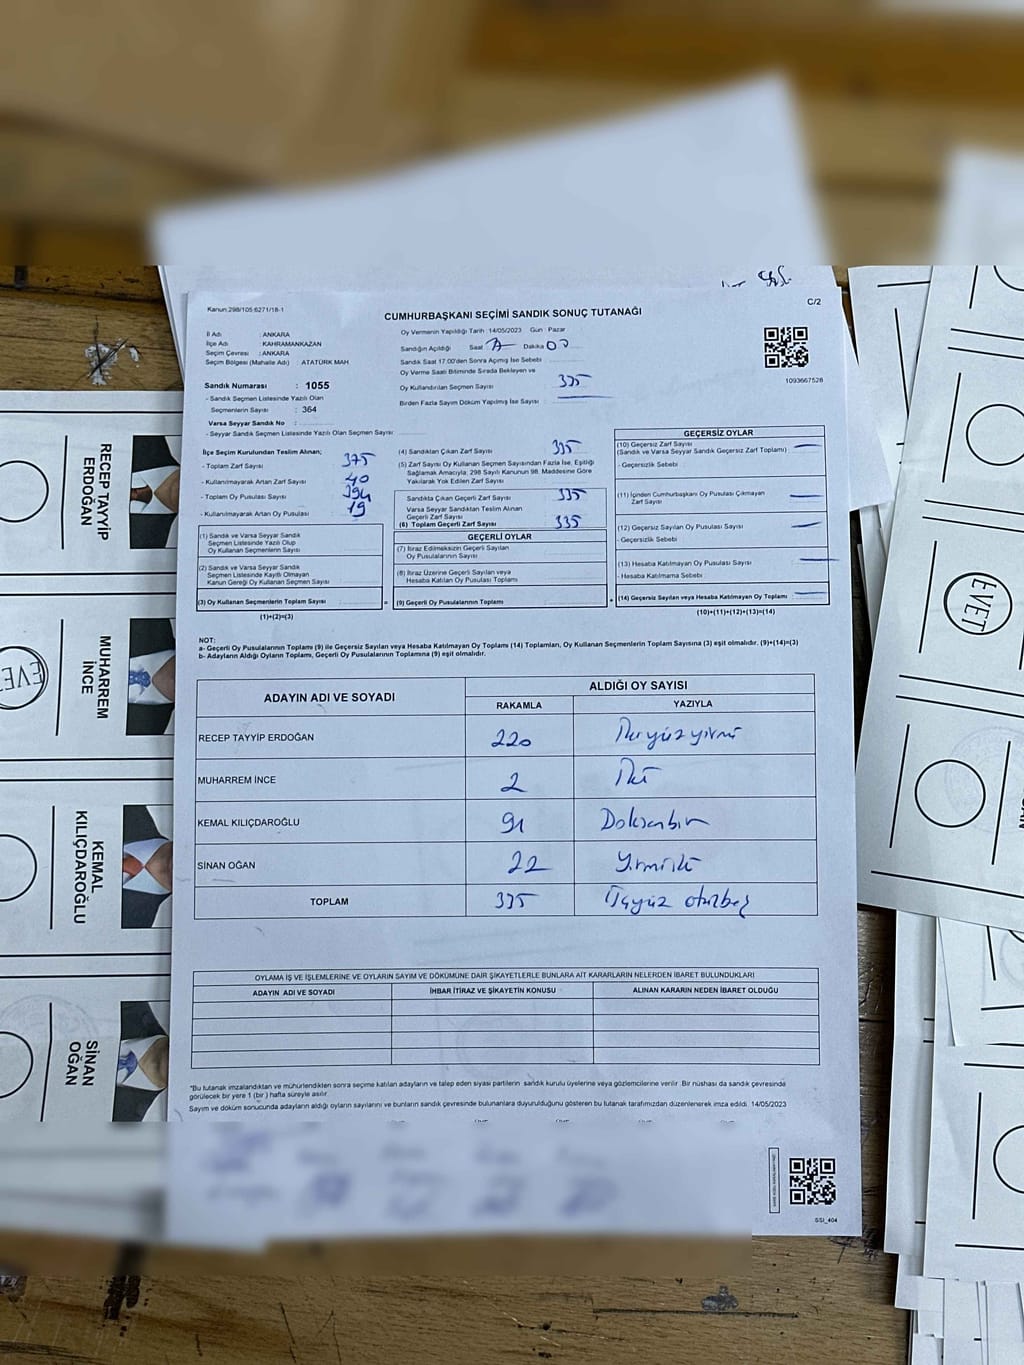 Kanun:298/105:6271/18-1
C/2
CUMHURBAŞKANI SEÇİMİ SANDIK SONUÇ TUTANAĞI
İl Adı : ANKARA
İlçe Adı : KAHRAMANKAZAN
Seçim Çevresi : ANKARA
Seçim Bölgesi (Mahalle Adı) : ATATÜRK MAH
Sandık Numarası : 1055
- Sandık Seçmen Listesinde Yazılı Olan
Seçmenlerin Sayısı : 364
Varsa Seyyar Sandık No :
- Seyyar Sandık Seçmen Listesinde Yazılı Olan Seçmen Sayısı
Oy Vermenin Yapıldığı Tarih :14/05/2023 Gün : Pazar
Sandığın Açıldığı Saat Dakika 00
Sandık Saat 17.00'den Sonra Açılmış İse Sebebi :
Oy Verme Saati Bitiminde Sırada Bekleyen ve
Oy Kullandırılan Seçmen Sayısı : 335
Birden Fazla Sayım Döküm Yapılmış İse Sayısı :
1093667528
İlçe Seçim Kurulundan Teslim Alınan;
- Toplam Zarf Sayısı 375
- Kullanılmayarak Artan Zarf Sayısı 40
- Toplam Oy Pusulası Sayısı 394
- Kullanılmayarak Artan Oy Pusulası
(1) Sandık ve Varsa Seyyar Sandık
Seçmen Listesinde Yazılı Olup
Oy Kullanan Seçmenlerin Sayısı
(2) Sandık ve Varsa Seyyar Sandık
Seçmen Listesinde Kayıtlı Olmayan
Kanun Gereği Oy Kullanan Seçmen Sayısı
(3) Oy Kullanan Seçmenlerin Toplam Sayısı =
(1)+(2)=(3)
(4) Sandıktan Çıkan Zarf Sayısı 335
(5) Zarf Sayısı Oy Kullanan Seçmen Sayısından Fazla İse, Eşitliği
Sağlamak Amacıyla, 298 Sayılı Kanunun 98. Maddesine Göre
Yakılarak Yok Edilen Zarf Sayısı
Sandıkta Çıkan Geçerli Zarf Sayısı 335
Varsa Seyyar Sandıktan Teslim Alınan
Geçerli Zarf Sayısı
(6) Toplam Geçerli Zarf Sayısı 335
GEÇERLİ OYLAR
(7) İtiraz Edilmeksizin Geçerli Sayılan
Oy Pusulalarının Sayısı
(8) İtiraz Üzerine Geçerli Sayılan veya
Hesaba Katılan Oy Pusulası Toplamı
(9) Geçerli Oy Pusulalarının Toplamı +
GEÇERSİZ OYLAR
(10) Geçersiz Zarf Sayısı
(Sandık ve Varsa Seyyar Sandık Geçersiz Zarf Toplamı)
- Geçersizlik Sebebi
(11) İçinden Cumhurbaşkanı Oy Pusulası Çıkmayan
Zarf Sayısı
(12) Geçersiz Sayılan Oy Pusulası Sayısı
- Geçersizlik Sebebi
(13) Hesaba Katılmayan Oy Pusulası Sayısı
- Hesaba Katılmama Sebebi
(14) Geçersiz Sayılan veya Hesaba Katılmayan Oy Toplamı
(10)+(11)+(12)+(13)=(14)
NOT:
a- Geçerli Oy Pusulalarının Toplamı (9) ile Geçersiz Sayılan veya Hesaba Katılmayan Oy Toplamı (14) Toplamları, Oy Kullanan Seçmenlerin Toplam Sayısına (3) eşit olmalıdır. (9)+(14)=(3)
b- Adayların Aldığı Oyların Toplamı, Geçerli Oy Pusulalarının Toplamına (9) eşit olmalıdır.
ADAYIN ADI VE SOYADI ALDIĞI OY SAYISI
RAKAMLA YAZIYLA
RECEP TAYYİP ERDOĞAN 220 İkiyüzyirmi
MUHARREM İNCE 2 İki
KEMAL KILIÇDAROĞLU 91 Doksanbir
SİNAN OĞAN 22 Yirmiiki
TOPLAM 335 Üçyüz otuzbeş
OYLAMA İŞ VE İŞLEMLERİNE VE OYLARIN SAYIM VE DÖKÜMÜNE DAİR ŞİKAYETLERLE BUNLARA AİT KARARLARIN NELERDEN İBARET BULUNDUKLARI
ADAYIN ADI VE SOYADI İHBAR İTİRAZ VE ŞİKAYETİN KONUSU ALINAN KARARIN NEDEN İBARET OLDUĞU
*Bu tutanak imzalandıktan ve mühürlendikten sonra seçime katılan adayların ve talep eden siyasi partilerin sandık kurulu üyelerine veya gözlemcilerine verilir. Bir nüshası da sandık çevresinde
görülecek bir yere 1 (bir) hafta süreyle asılır.
Sayım ve döküm sonucunda adayların aldığı oyların sayılarını ve bunların sandık çevresinde bulunanlara duyurulduğunu gösteren bu tutanak tarafımızdan düzenlenerek imza edildi. 14/05/2023
SSI_404
RECEP TAYYİP
ERDOĞAN
MUHARREM
İNCE
EVET
KEMAL
KILIÇDAROĞLU
SİNAN
OĞAN
EVET